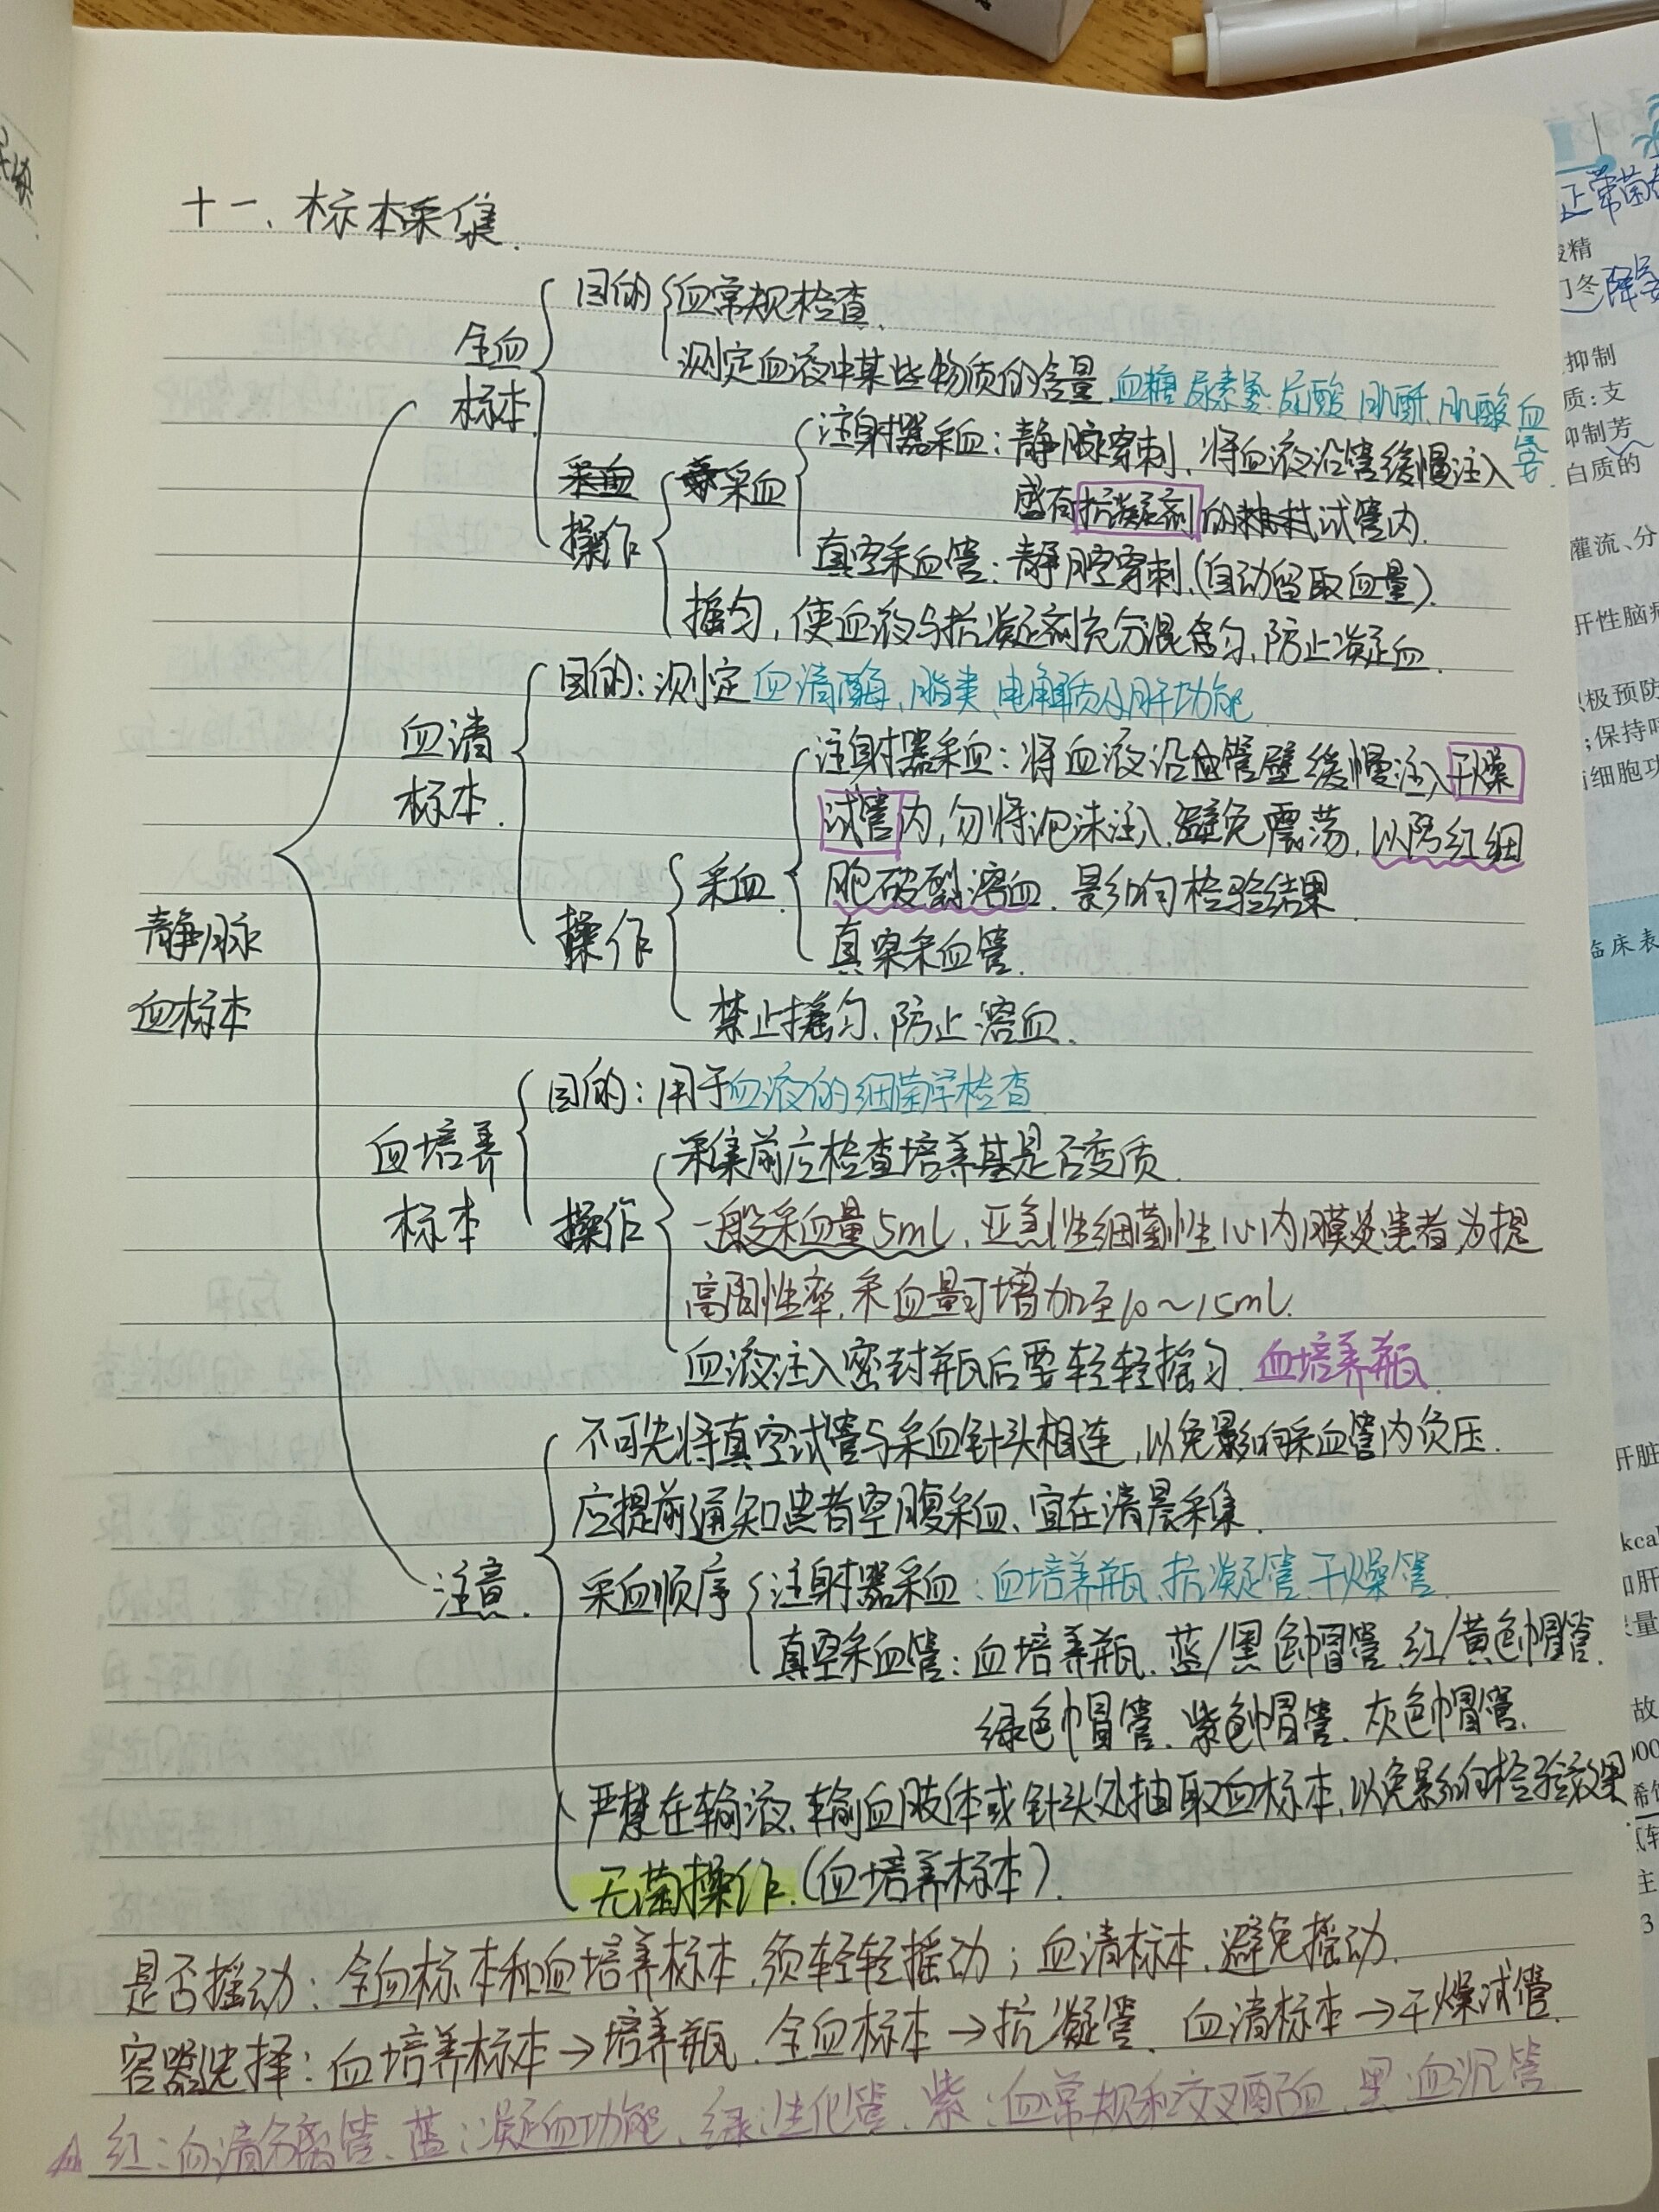 十一、标本采集.
全血
标本
目的
血常规检查.
测定血液中某些物质的含量.血糖 尿素氮.尿酸 肌酐.肌酸 血
氨
操作
采血
注射器采血：静脉穿刺，将血液沿管缓慢注入
盛有抗凝剂的试管内.
真空采血管：静脉穿刺.(自动留取血量).
摇匀，使血液与抗凝剂充分混匀，防止凝血.
血清
标本.
目的：测定血清酶、脂类、电解质及肝功能
操作
采血
注射器采血：将血液沿管壁缓慢注入干燥
试管内，勿将泡沫注入.避免震荡，以防红细
胞破裂溶血，影响检验结果.
真空采血管.
禁止摇匀，防止溶血.
静脉
血标本
血培养
标本
目的：用于血液的细菌学检查
操作
采集前应检查培养基是否变质.
一般采血量5mL，亚急性细菌性心内膜炎患者为提
高阳性率，采血量可增加至10～15mL.
血液注入密封瓶后要轻轻摇匀.血培养瓶.
注意.
不可先将真空试管与采血针头相连，以免影响采血管内负压.
应提前通知患者空腹采血、宜在清晨采集.
采血顺序
注射器采血：血培养瓶、抗凝管、干燥管.
真空采血管：血培养瓶、蓝/黑色帽管、红/黄色帽管.
绿色帽管、紫色帽管、灰色帽管.
严禁在输液、输血肢体或针头处抽取血标本，以免影响检验效果.
无菌操作.(血培养标本).
是否摇动：全血标本和血培养标本，须轻轻摇动；血清标本，避免摇动.
容器选择：血培养标本→培养瓶、全血标本→抗凝管、血清标本→干燥试管.
红：血清分离管、蓝：凝血功能、绿：生化管、紫：血常规和交叉配血、黑：血沉管
正常菌
冬
抑制
质：支
抑制芳
白质的
灌流、分
肝性脑病
积极预防
；保持呼
细胞功
临床表
肝脏
kcal
和肝
量
故